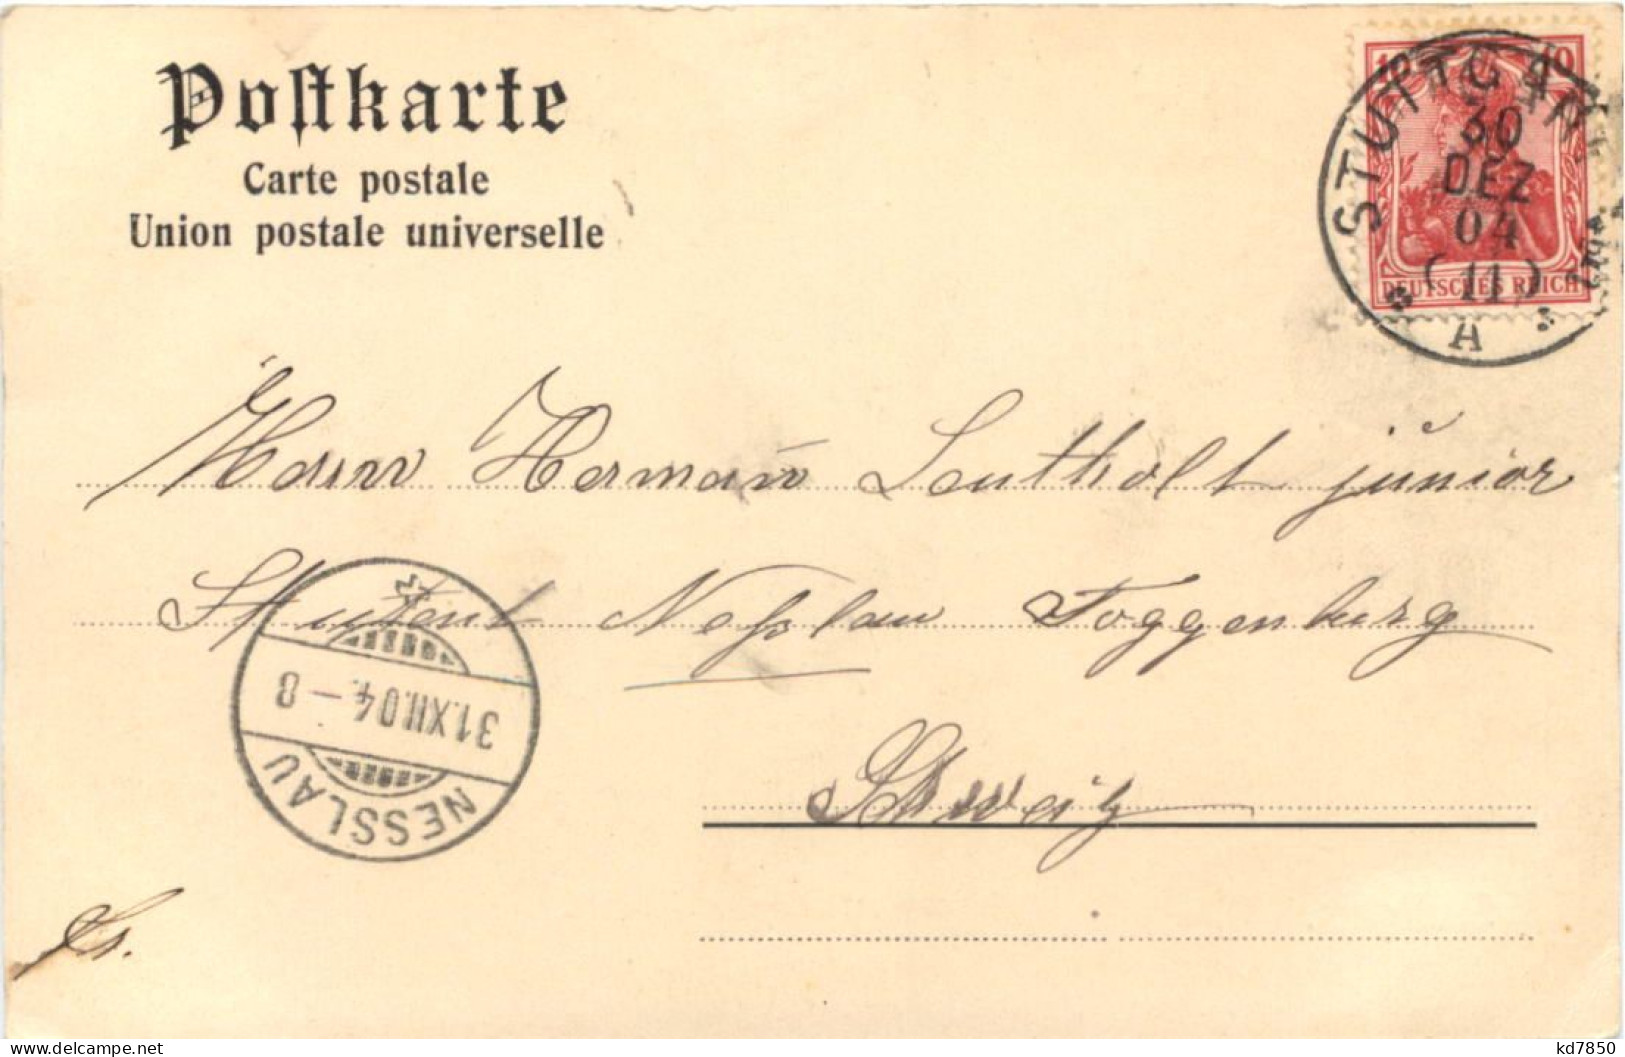 Postkarte
Carte postale
Union postale universelle
10 10
DEUTSCHES REICH
STUTTGART
30
DEZ
04
(11)
A
Herrn Herman Leuthold junior
Student Nesslau Toggenburg
Schweiz
31.XII.04.-8
NESSLAU
kd7850